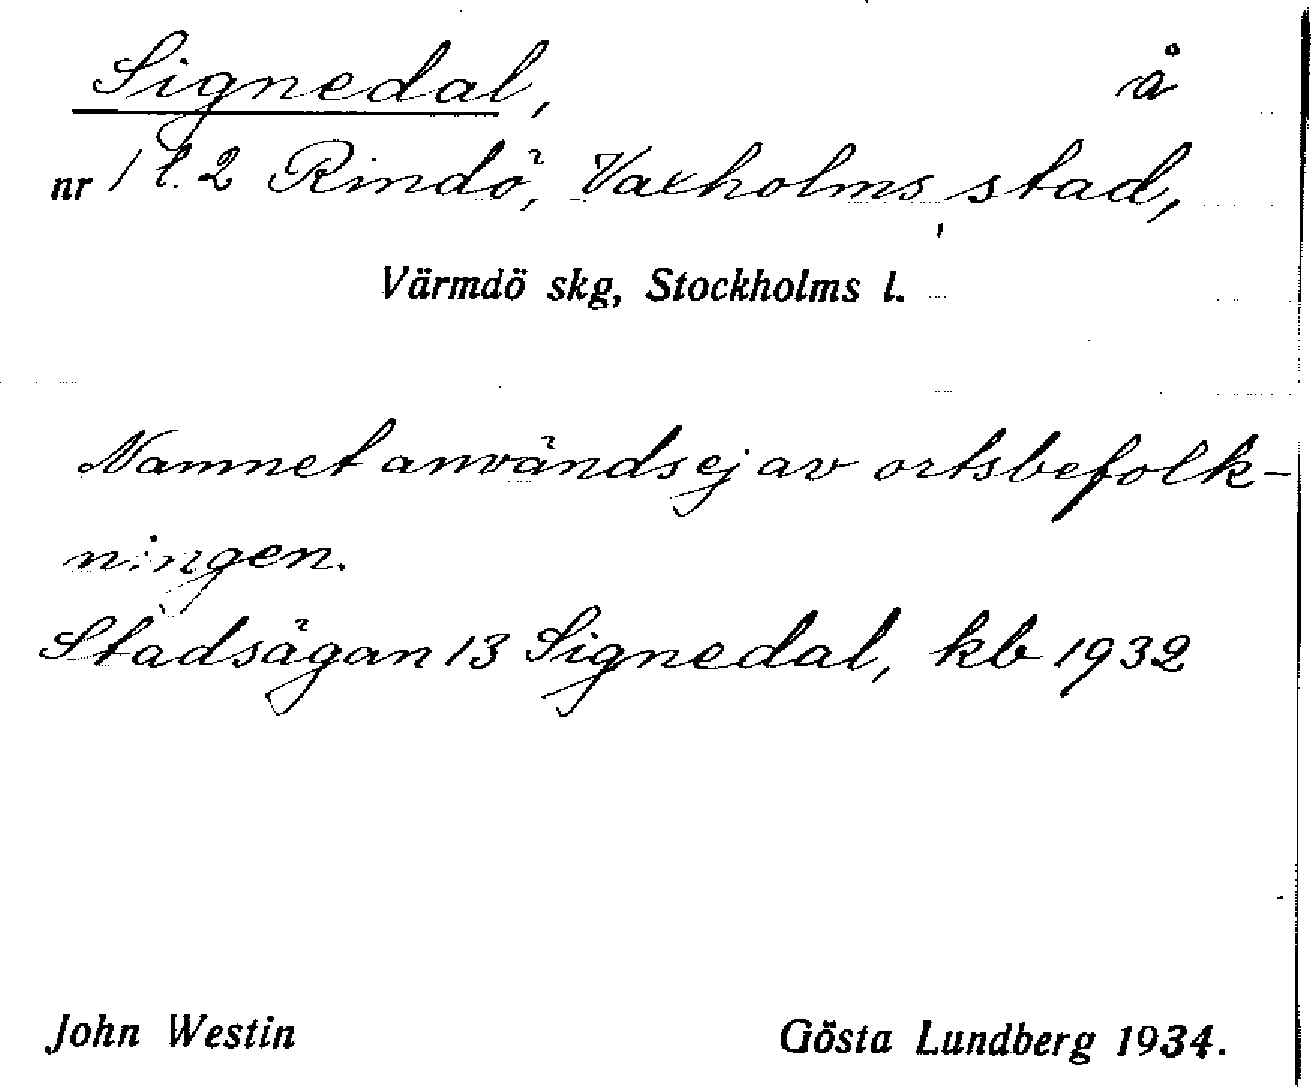 Signedal, å
nr 1 l. 2 Rindö, Vaxholms stad,
Värmdö skg, Stockholms l.
Namnet användsejav ortsbefolk-
ningen.
Stadsägan 13 Signedal, kb 1932
John Westin Gösta Lundberg 1934.